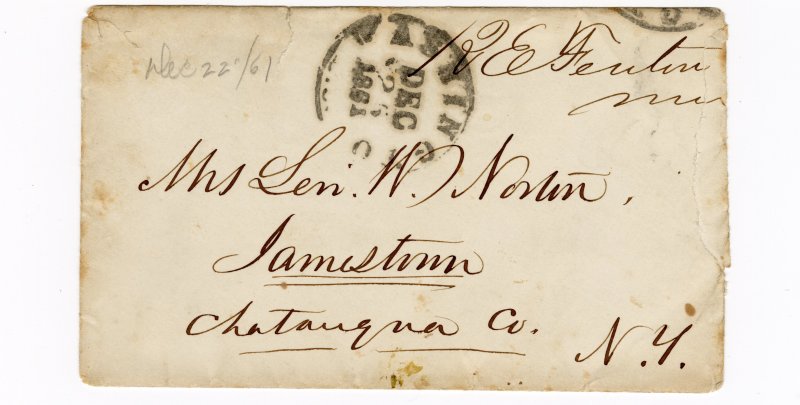 Dec 22/61
WASHINGTON
DEC
1861
R E Fenton
Mrs Levi. W. Norton,
Jamestown
Chatauqua Co.
N.Y.